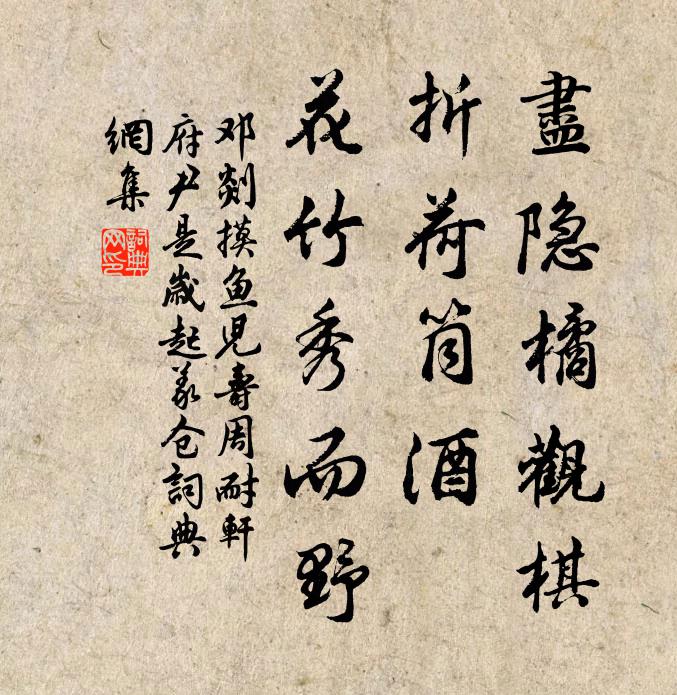 盡隐橘觀棋
折荷筒酒
花竹秀而野
邓剡摸鱼児壽周耐軒
府尹是歲起义仓詞典
網集
詞典
网印